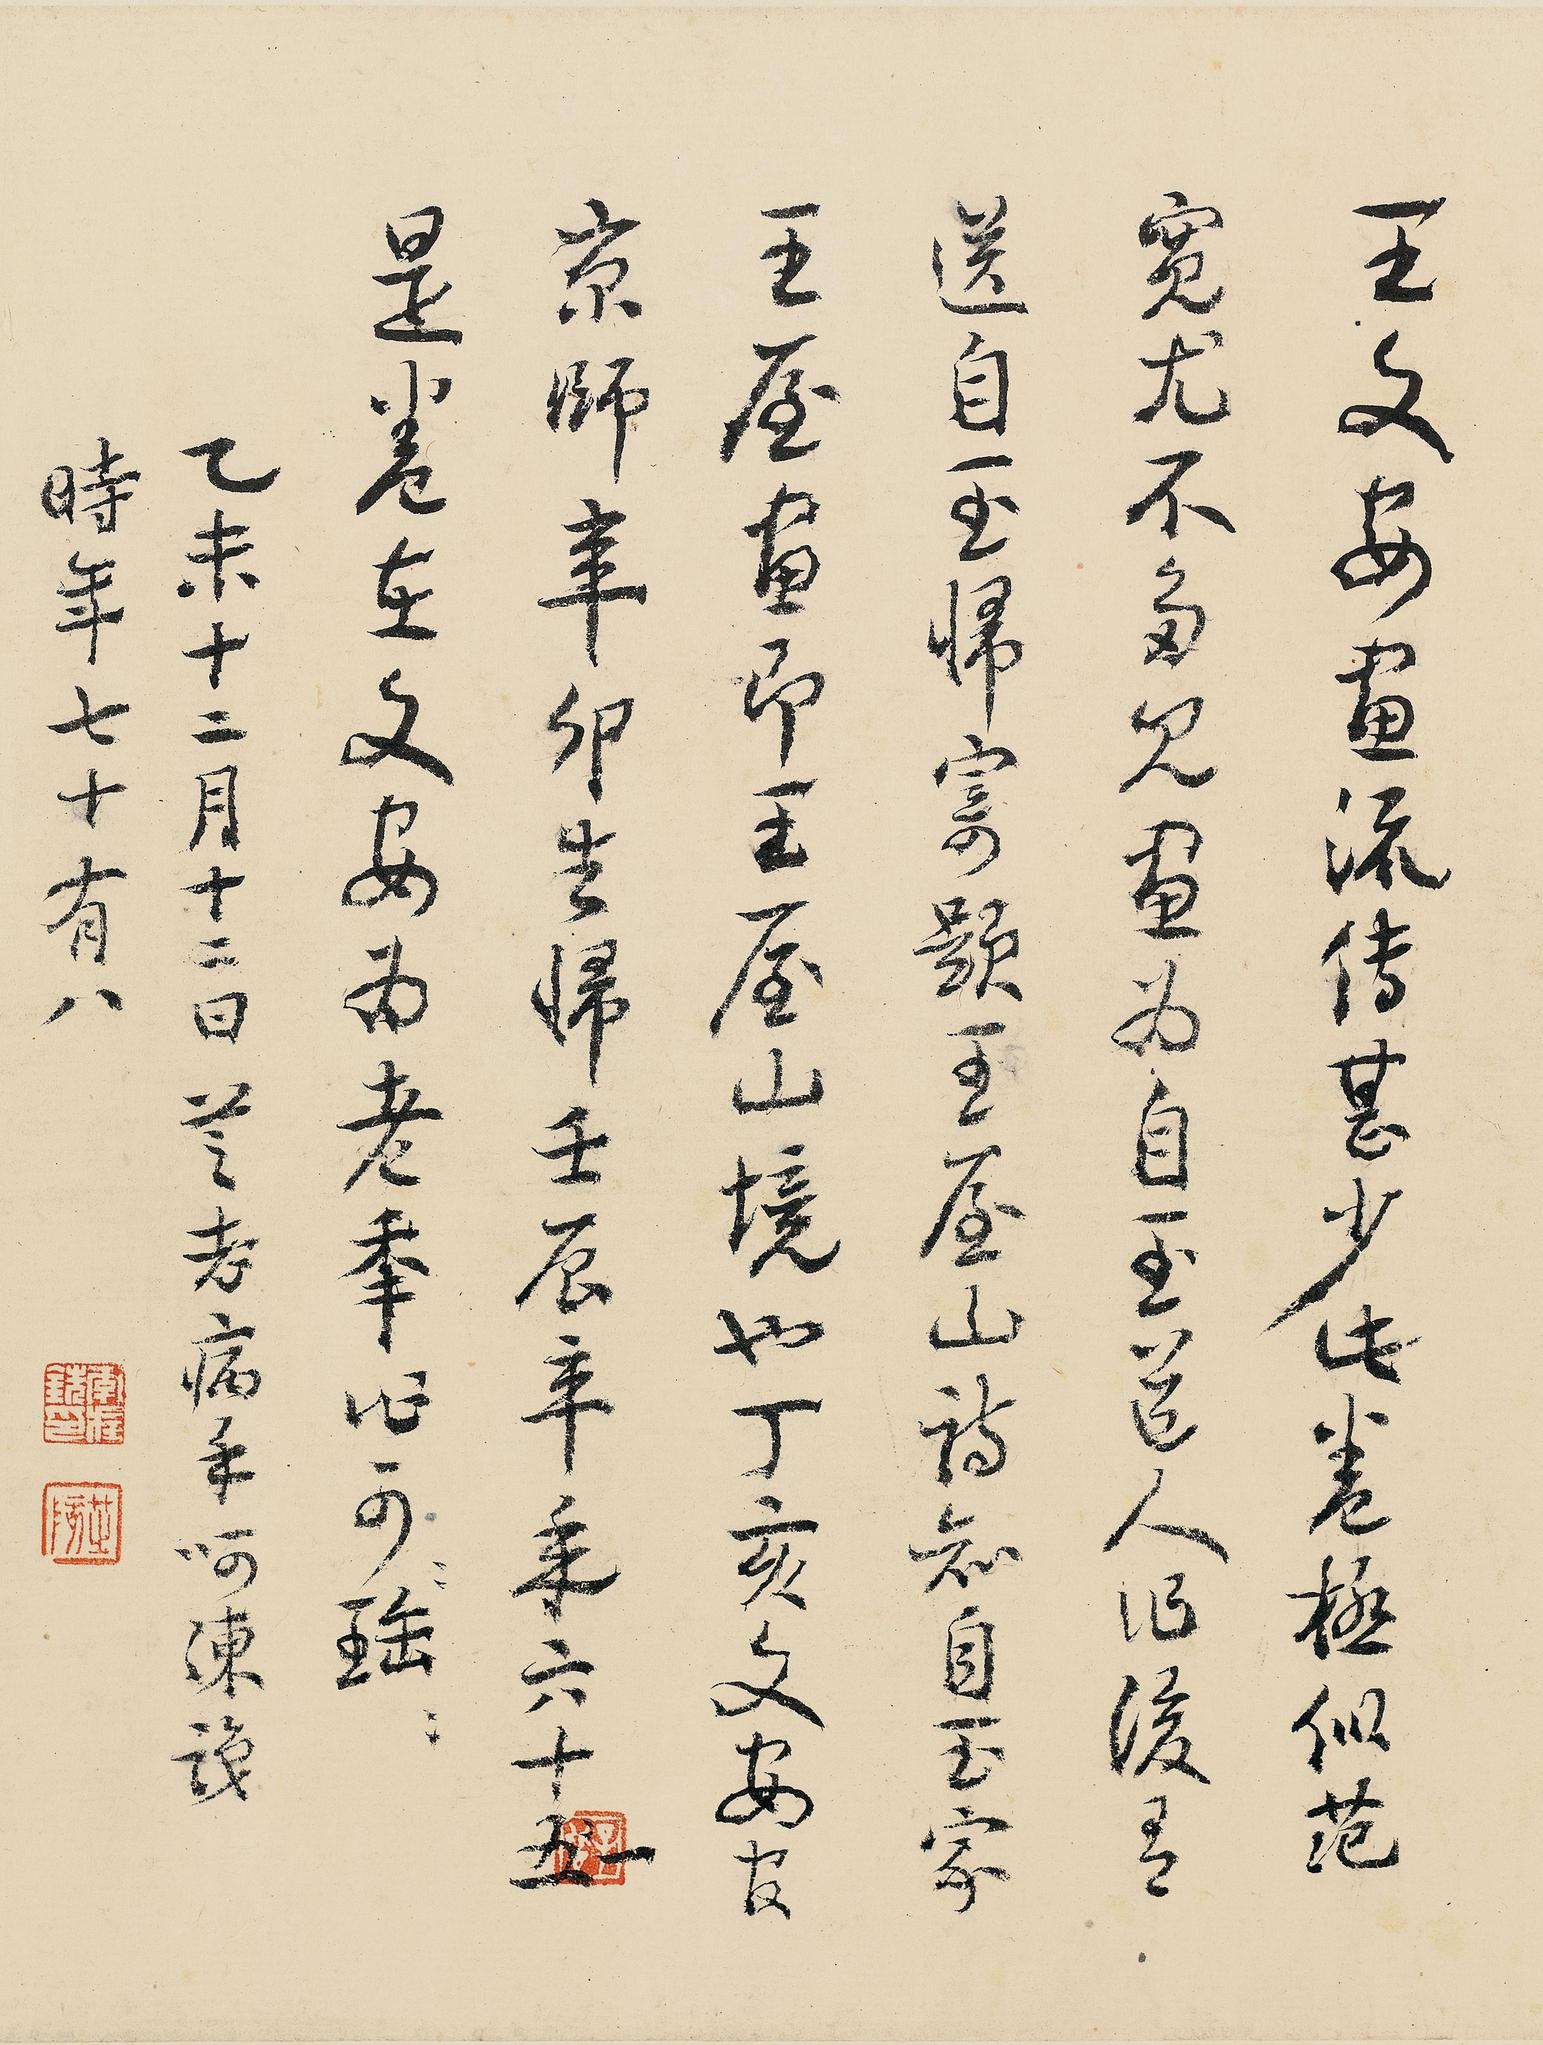 王文安畫流傳甚少此卷極似范
寬尤不多見畫為自玉道人作後有
送自玉歸寄題王屋山詩知自玉家
王屋畫即王屋山境也丁亥文安官
京師辛卯告歸壬辰卒年六十五一
是卷在文安為老年作可珤
乙未十二月十二日芷老病手呵凍識
時年七十有八